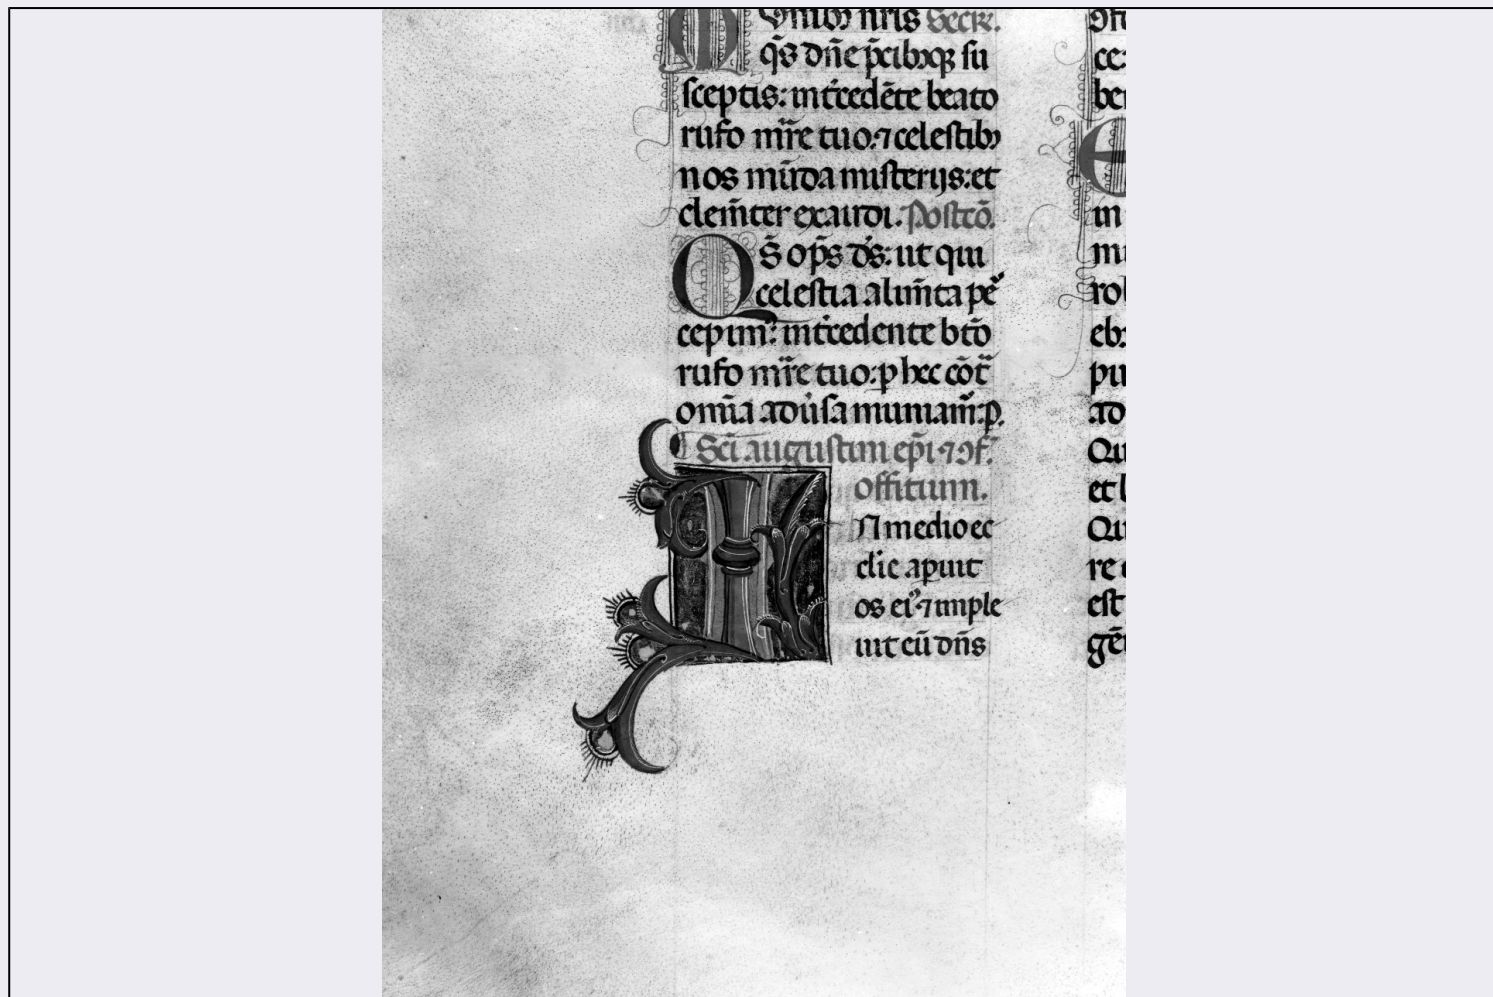 nr̄is Secr̄.
M
q̄s dn̄e p̄cibꝫqꝫ su
sceptis: int̄cedēte beato
rufo mr̄e tuo: ⁊ celestibꝫ
nos mūda misterijs: et
clem̄ter exaudi. Postcō.
Q̄s op̄s ds̄: ut qui
celestia alim̄ta pe᷒
cepim᷒: int̄cedente btō
rufo mr̄e tuo: p hec cōt᷒
om̄ia adūsa muniam᷒: p.
Sc̄i augustini ep̄i ⁊ ꝯf.
offitium.
IN medio ec
clīe apuit
os ei᷒ ⁊ imple
uit eū dn̄s
cc
ber
E
in
mi
rob
eb:
pu
ad
Qu
et l
Qu
re
est
gē